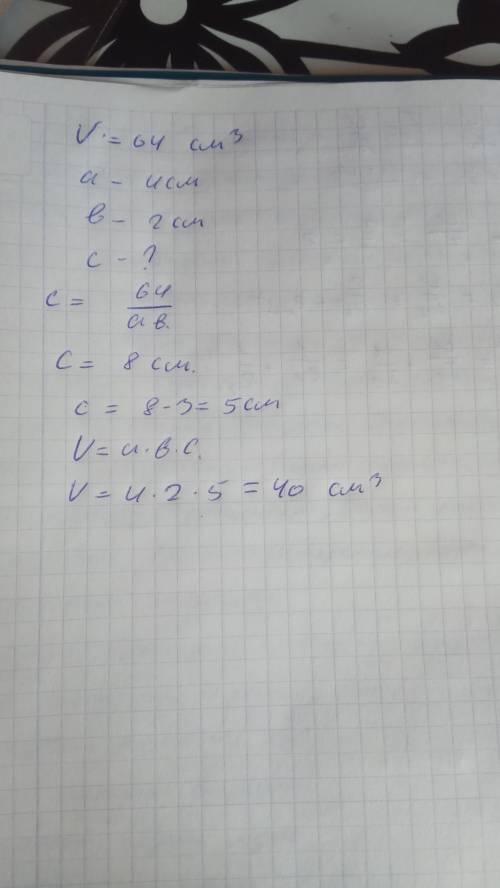 V = 64 см³
а - 4см
в - 2см
с - ?
с = 64/ав.
С = 8 см.
с = 8-3= 5см
V = а·в·с.
V = 4·2·5 = 40 см³